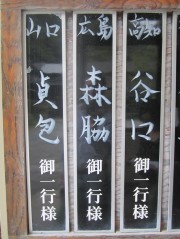 高知
谷口
御一行様
広島
森脇
御一行様
山口
貞包
御一行様